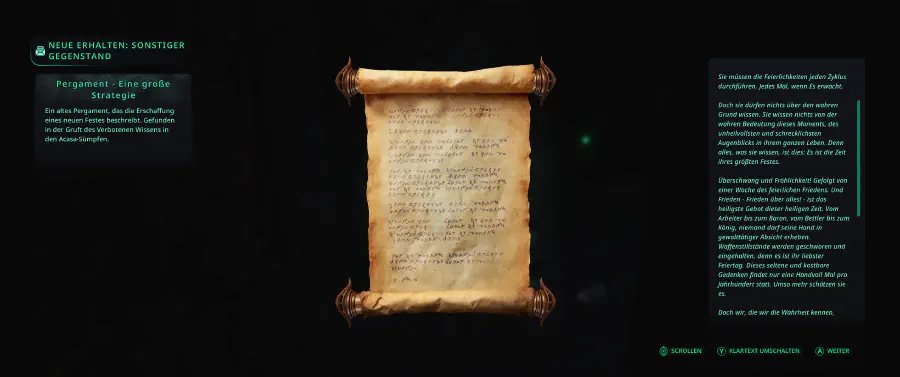 NEUE ERHALTEN: SONSTIGER
GEGENSTAND
Pergament - Eine große
Strategie
Ein altes Pergament, das die Erschaffung
eines neuen Festes beschreibt. Gefunden
in der Gruft des Verbotenen Wissens in
den Acasa-Sümpfen.
Sie müssen die Feierlichkeiten jeden Zyklus
durchführen. Jedes Mal, wenn Es erwacht.
Doch sie dürfen nichts über den wahren
Grund wissen. Sie wissen nichts von der
wahren Bedeutung dieses Moments, des
unheilvollsten und schrecklichsten
Augenblicks in ihrem ganzen Leben. Denn
alles, was sie wissen, ist dies: Es ist die Zeit
ihres größten Festes.
Überschwang und Fröhlichkeit! Gefolgt von
einer Woche des feierlichen Friedens. Und
Frieden - Frieden über alles! - ist das
heiligste Gebot dieser heiligen Zeit. Vom
Arbeiter bis zum Baron, vom Bettler bis zum
König, niemand darf seine Hand in
gewalttätiger Absicht erheben.
Waffenstillstände werden geschworen und
eingehalten, denn es ist ihr liebster
Feiertag. Dieses seltene und kostbare
Gedenken findet nur eine Handvoll Mal pro
Jahrhundert statt. Umso mehr schätzen sie
es.
Doch wir, die wir die Wahrheit kennen,
SCROLLEN
Y KLARTEXT UMSCHALTEN
A WEITER